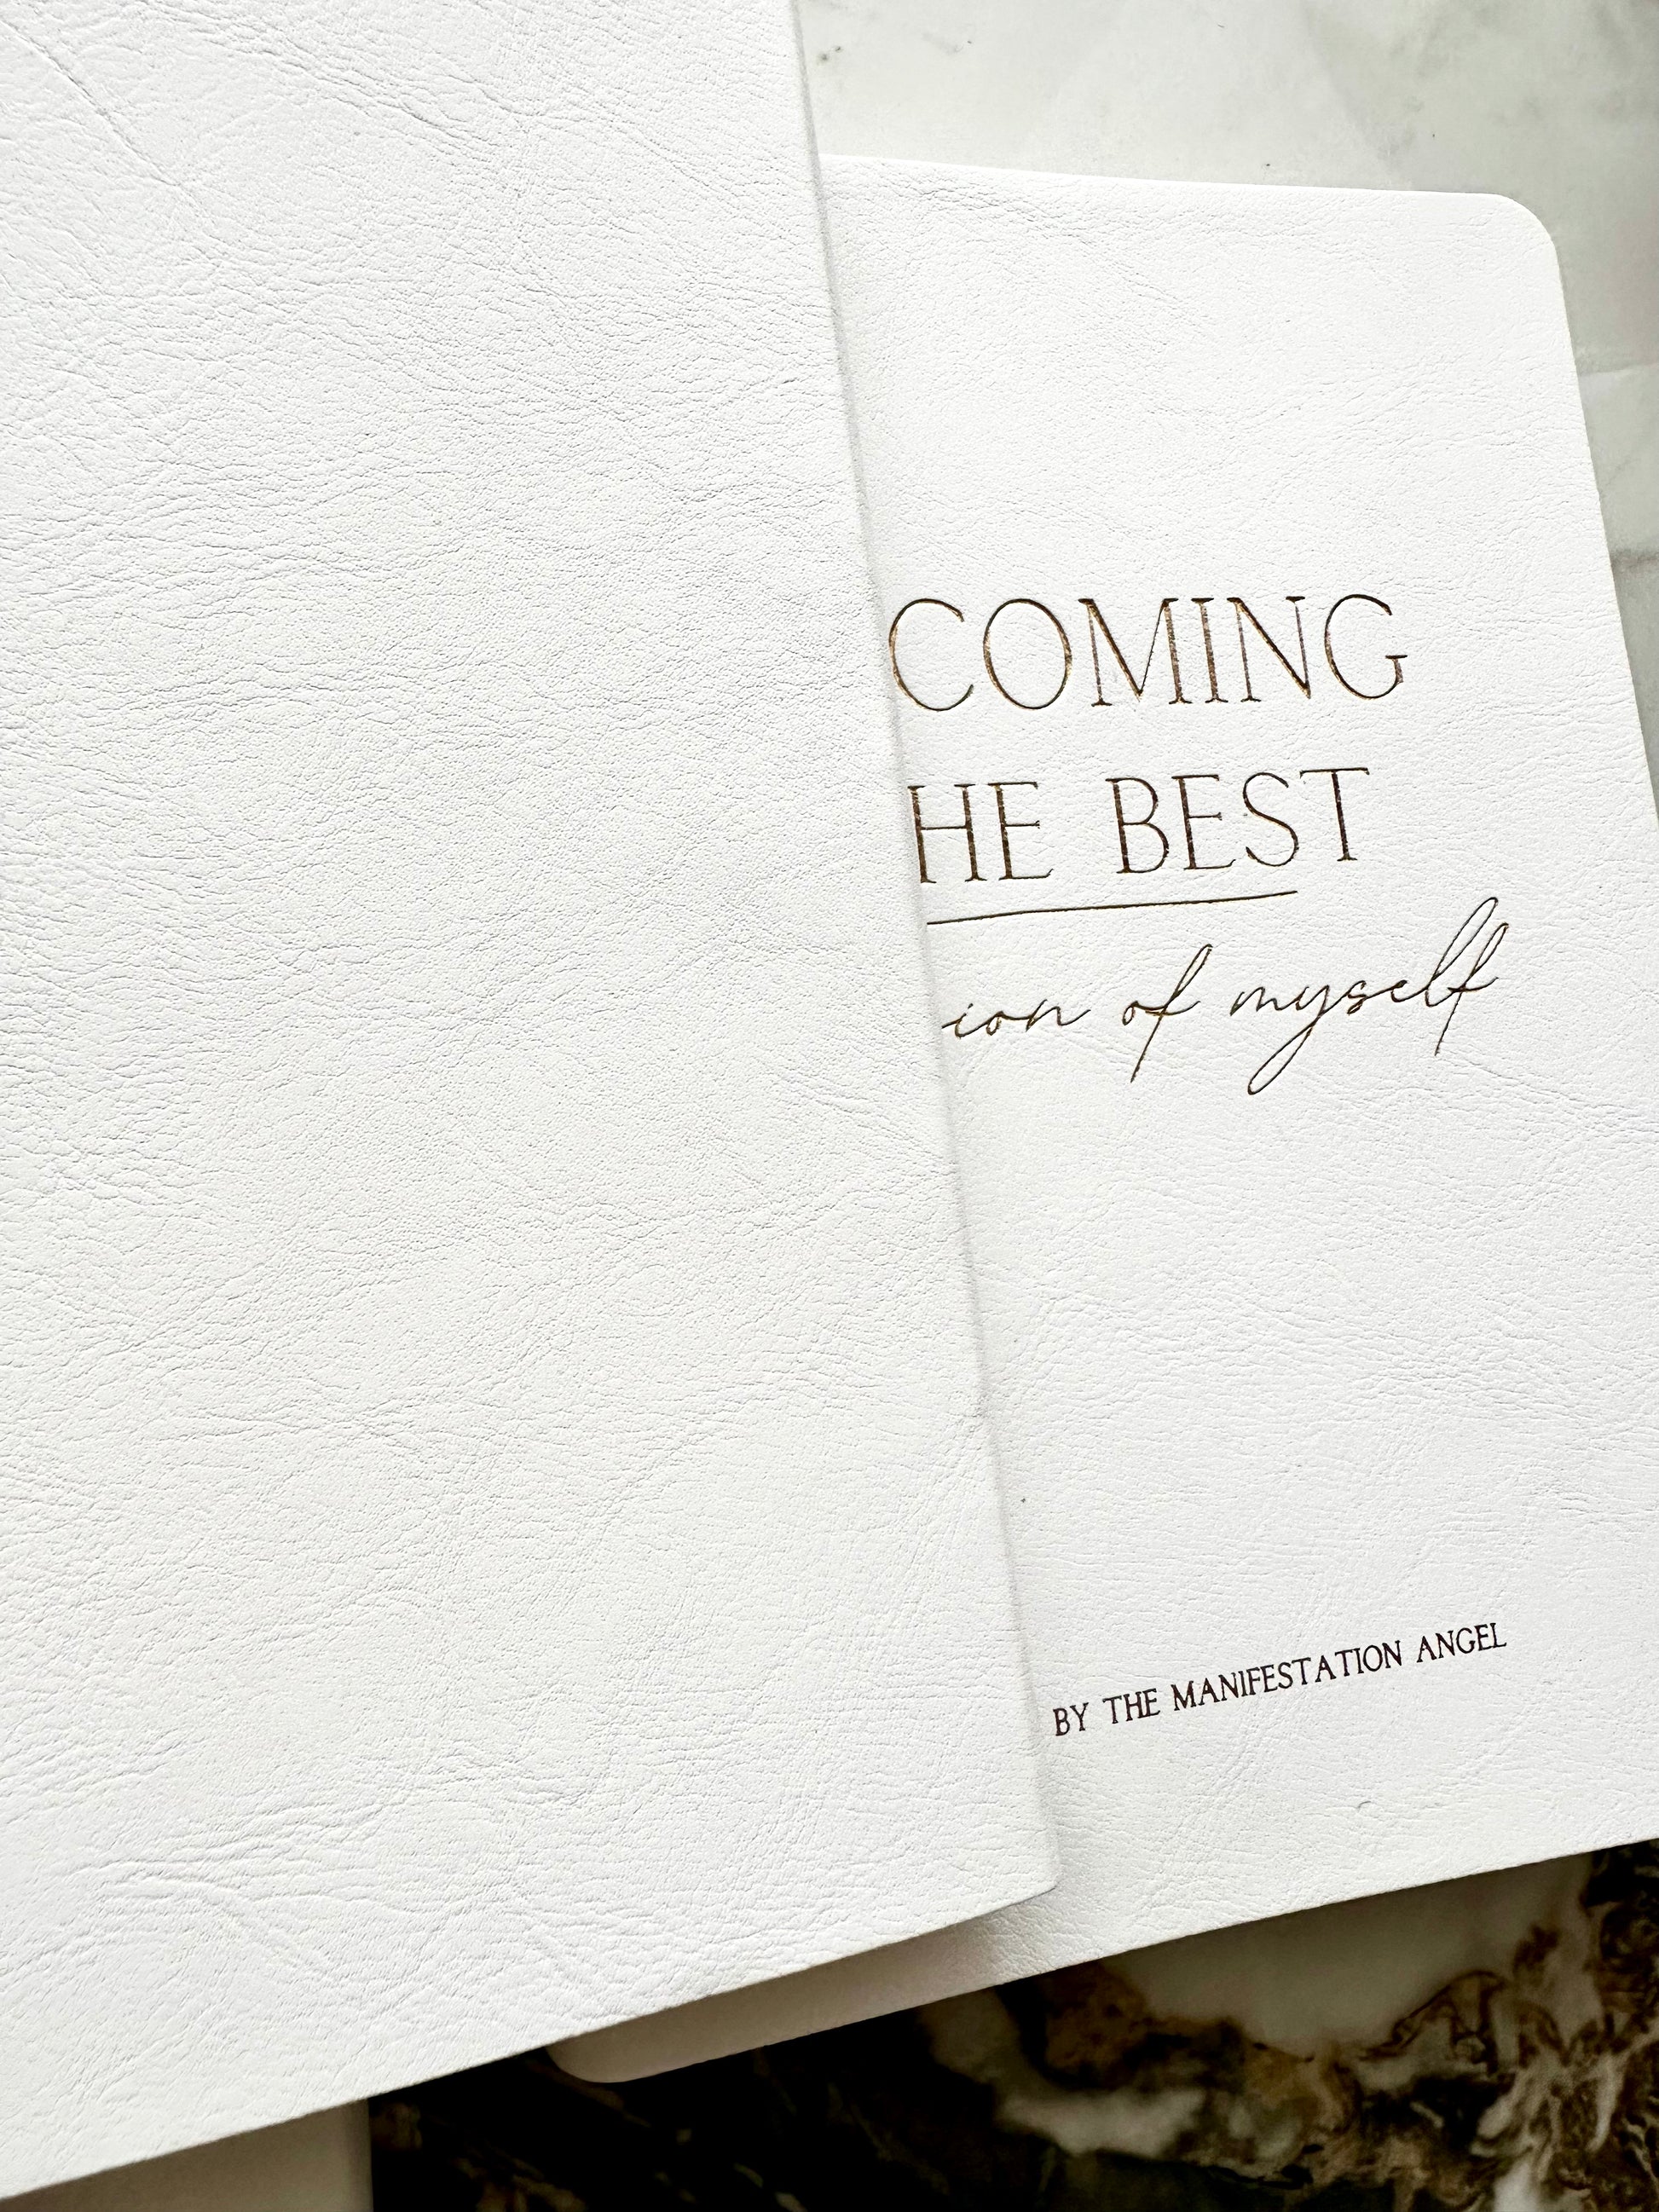 COMING
HE BEST
ion of myself
BY THE MANIFESTATION ANGEL